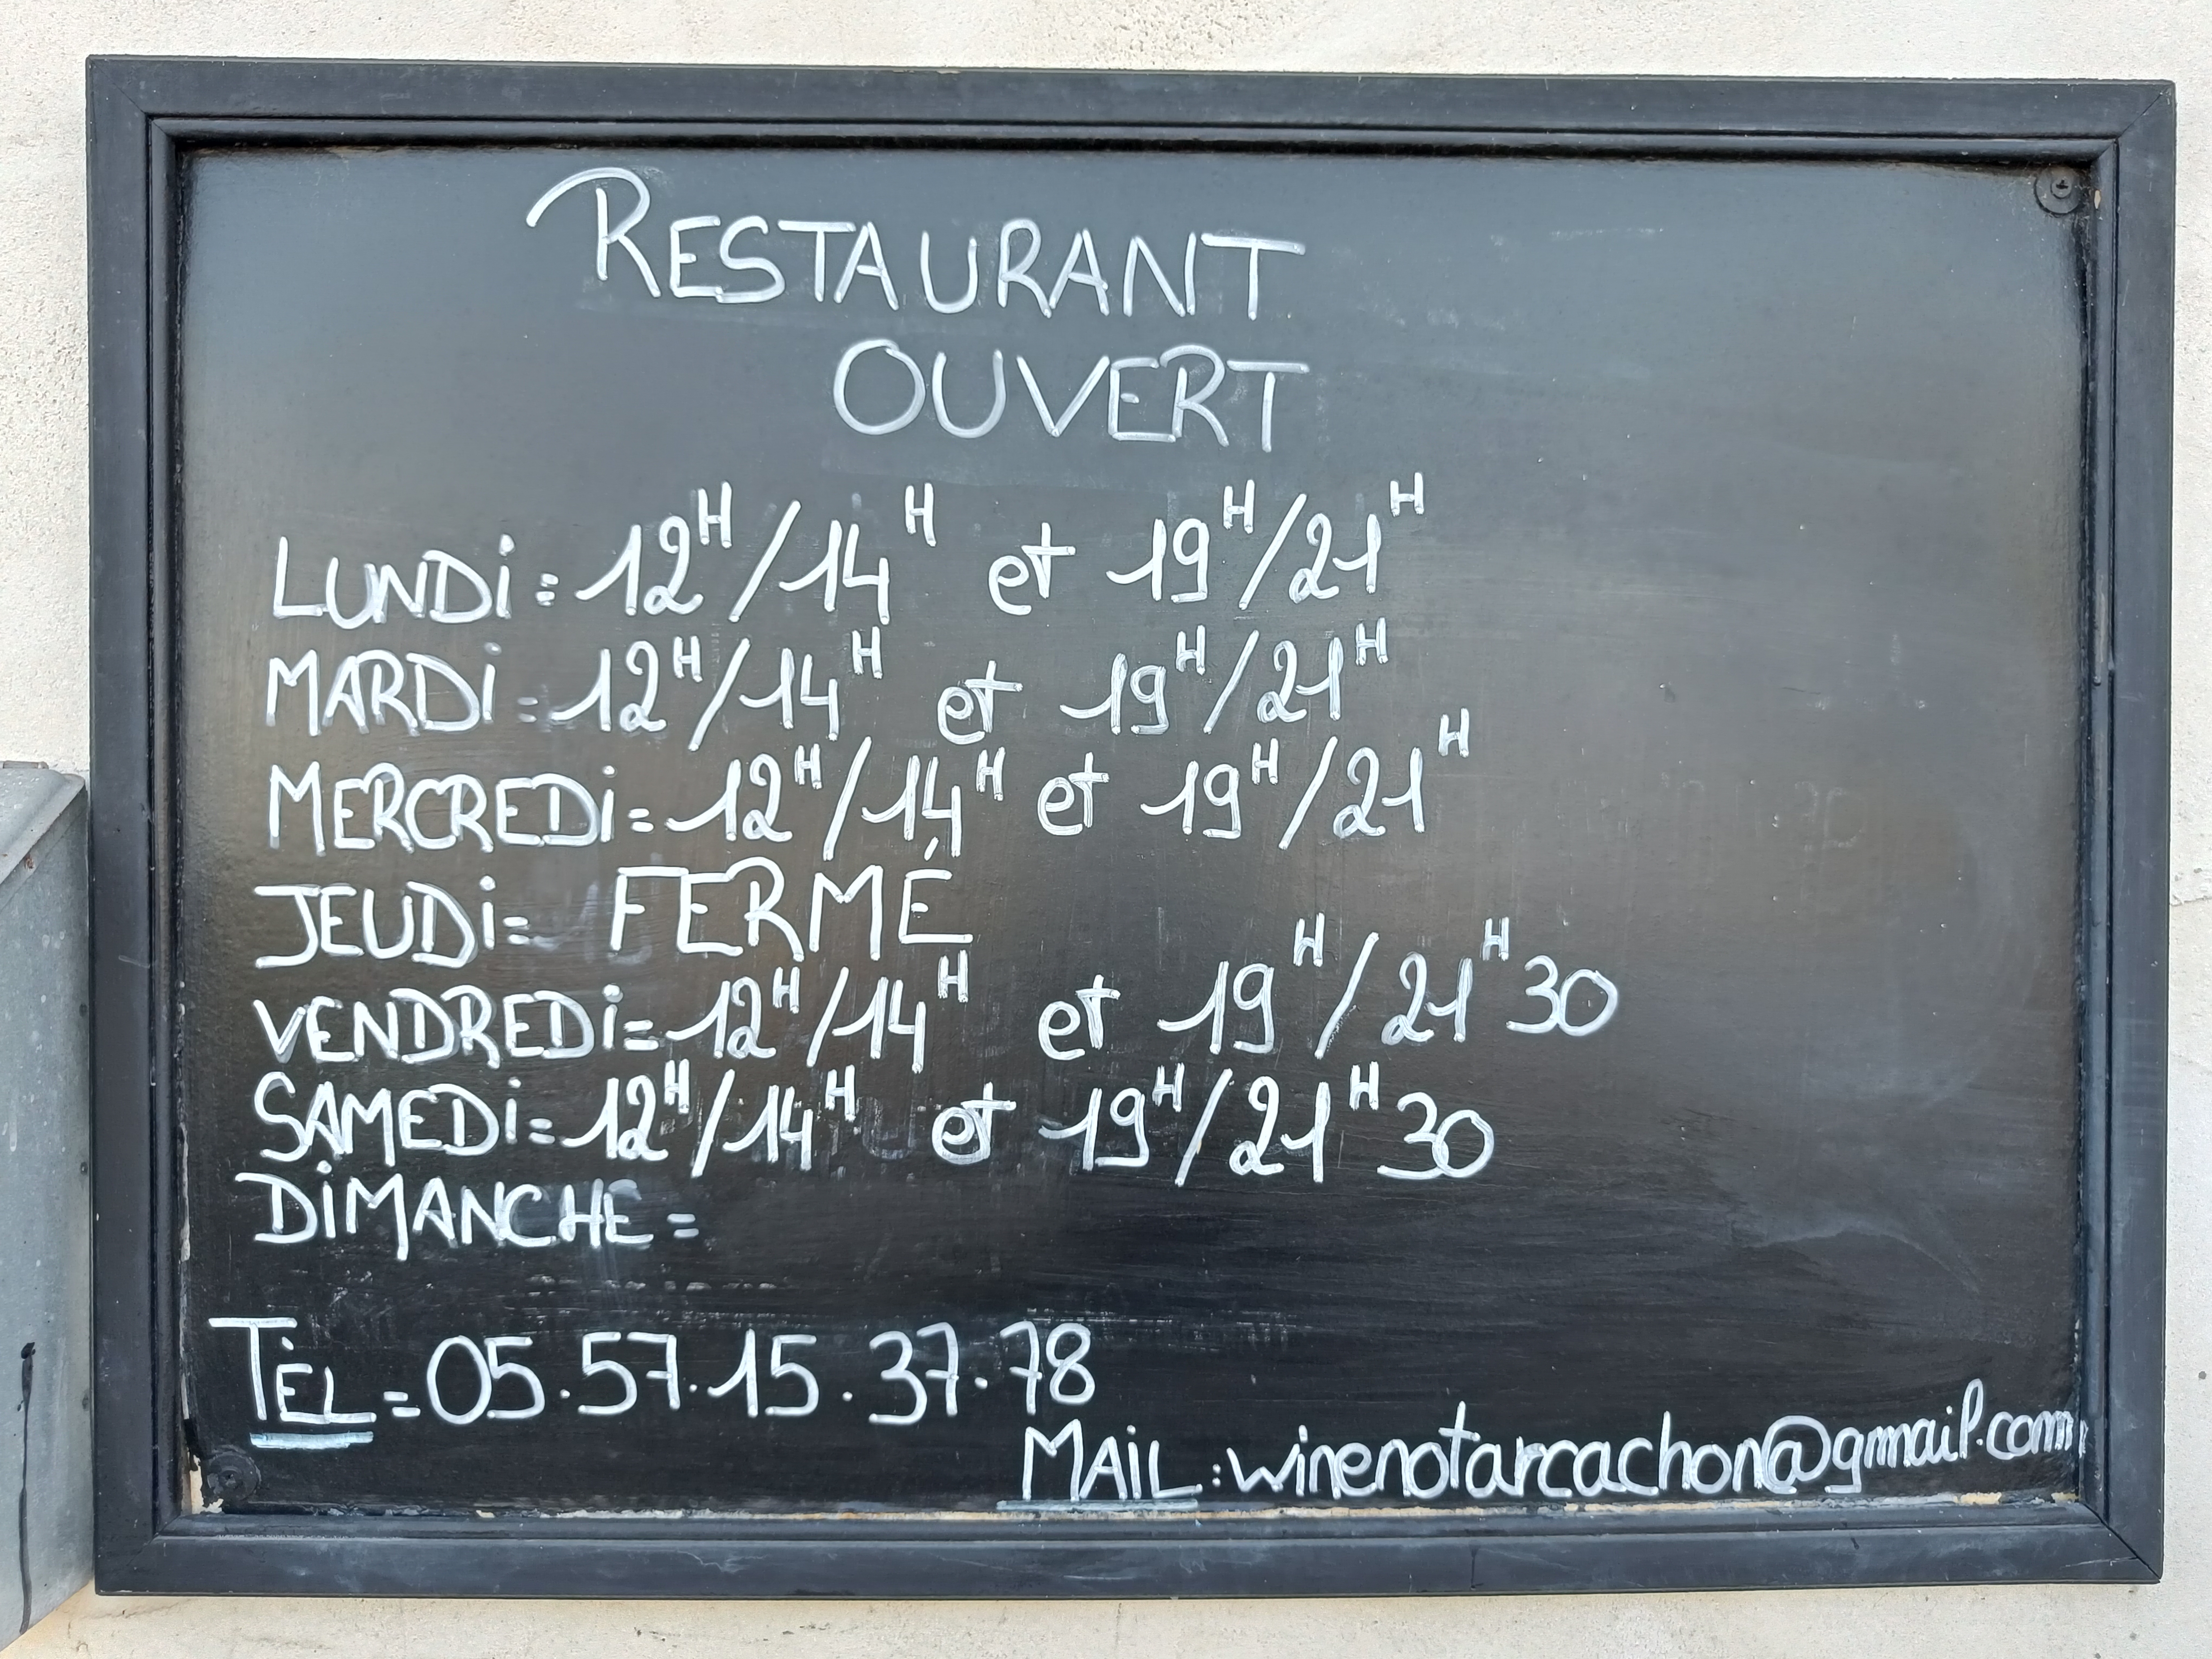 RESTAURANT
OUVERT
LUNDi = 12H/14H et 19H/21H
MARDi = 12H/14H et 19H/21H
MERCREDi = 12H/14H et 19H/21H
JEUDi = FERMÉ
VENDREDi = 12H/14H et 19H/21H30
SAMEDi = 12H/14H et 19H/21H30
DiMANCHE =
TÉL = 05.57.15.37.78
MAiL : winenotarcachon@gmail.com